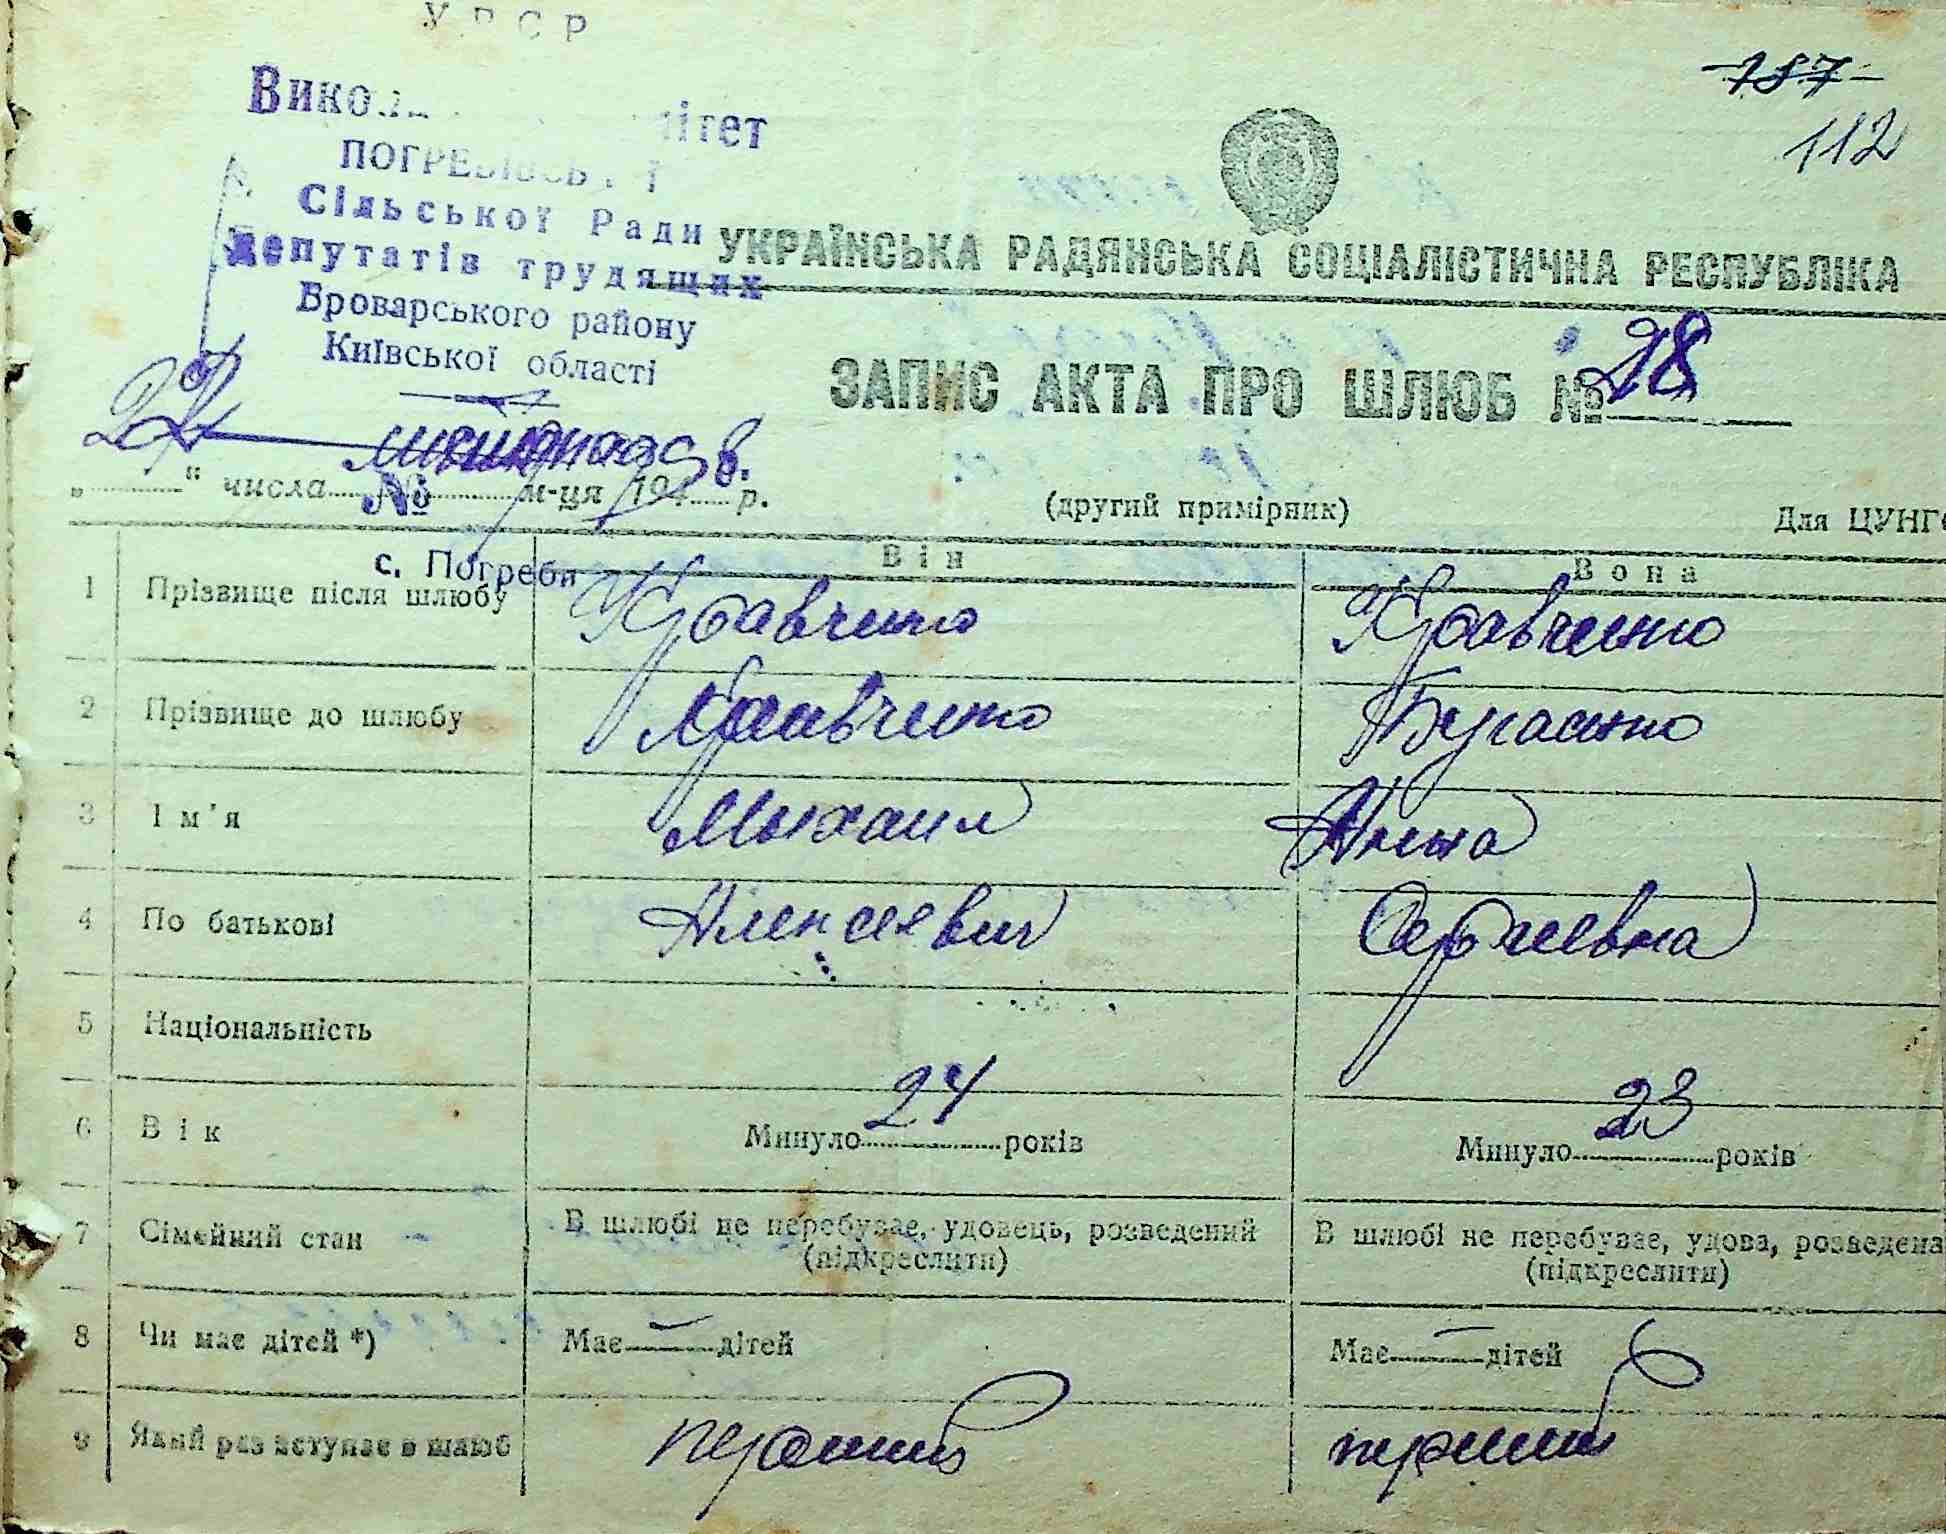 УРСР
187
112
ПОГРЕБІВСЬКОЇ
Сільської Ради
Депутатів трудящих
Броварського району
Київської області
УКРАЇНСЬКА РАДЯНСЬКА СОЦІАЛІСТИЧНА РЕСПУБЛІКА
ЗАПИС АКТА ПРО ШЛЮБ № 28
22
" " числа м-ця 194 8 р.
№
(другий примірник)
Для ЦУНГО
с. Погреби
Він Вона
1 Прізвище після шлюбу Кравченко Кравченко
2 Прізвище до шлюбу Кравченко Бугаенко
3 Ім'я Михаил Анна
4 По батькові Алексеевич Сергеевна
5 Національність
6 Вік Минуло 24 років Минуло 23 років
7 Сімейний стан В шлюбі не перебуває, удовець, розведений В шлюбі не перебуває, удова, розведена
(підкреслити) (підкреслити)
8 Чи має дітей *) Має — дітей Має — дітей
9 Який раз вступає в шлюб перший перший